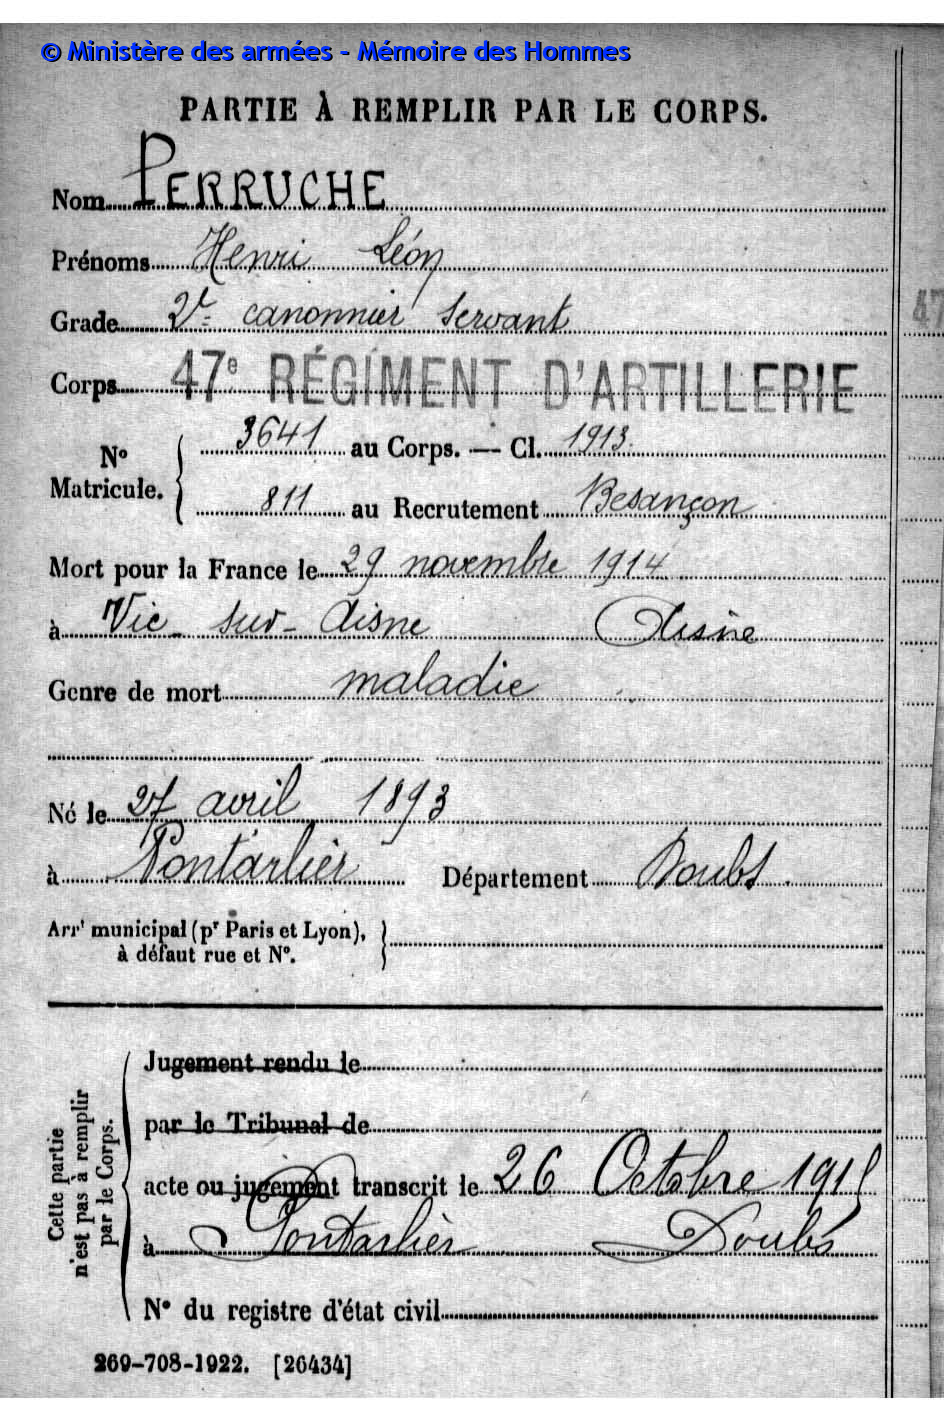 © Ministère des armées - Mémoire des Hommes
PARTIE À REMPLIR PAR LE CORPS.
Nom PERRUCHE
Prénoms Henri Léon
Grade 2e canonnier servant
Corps 47e RÉGIMENT D'ARTILLERIE
47
No Matricule. 3641 au Corps. — Cl. 1913.
811 au Recrutement Besançon
Mort pour la France le 29 novembre 1914
à Vic-sur-Aisne Aisne
Genre de mort maladie
Né le 27 avril 1893
à Pontarlier Département Doubs.
Arrt municipal (pr Paris et Lyon),
à défaut rue et No.
Cette partie
n'est pas à remplir
par le Corps.
Jugement rendu le
par le Tribunal de
acte ou jugement transcrit le 26 Octobre 1915
à Pontarlier Doubs
No du registre d'état civil
269-708-1922. [26434]